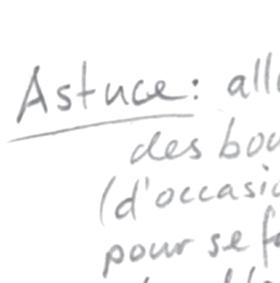 Astuce: all
des bou
(d'occasi
pour se fa